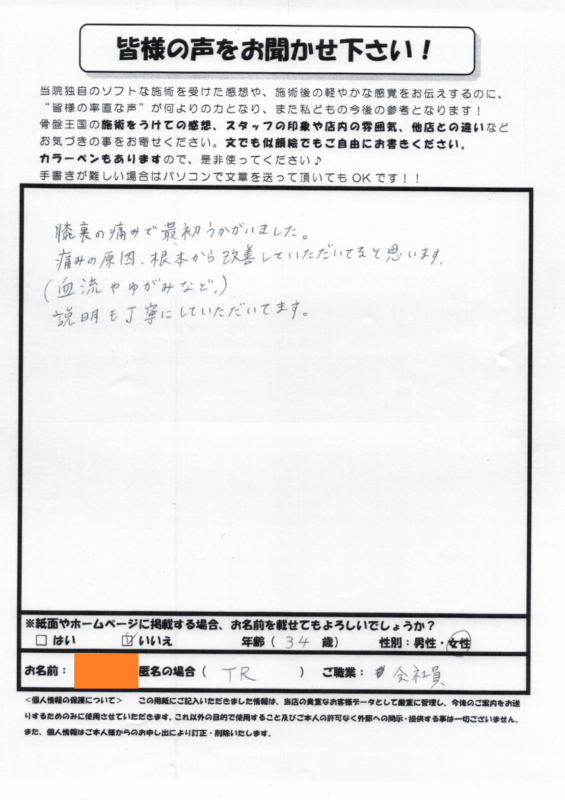 皆様の声をお聞かせ下さい！
当院独自のソフトな施術を受けた感想や、施術後の軽やかな感覚をお伝えするのに、
“皆様の率直な声”が何よりの力となり、また私どもの今後の参考となります！
骨盤王国の施術をうけての感想、スタッフの印象や店内の雰囲気、他店との違いなど
お気づきの事をお寄せください。文でも似顔絵でもご自由にお書きください。
カラーペンもありますので、是非使ってください♪
手書きが難しい場合はパソコンで文章を送って頂いてもＯＫです！！
膝裏の痛みで最初うかがいました。
痛みの原因、根本から改善していただいてると思います。
(血流やゆがみなど。)
説明も丁寧にしていただいてます。
※紙面やホームページに掲載する場合、お名前を載せてもよろしいでしょうか？
□ はい ☑ いいえ 年齢（ 34 歳） 性別：男性・女性
お名前： 匿名の場合（ TR ） ご職業： 会社員
＜個人情報の保護について＞ この用紙にご記入いただきました情報は、当店の貴重なお客様データとして厳重に管理し、今後のご案内をお送
りするためのみに使用させていただきます。これ以外の目的で使用すること及びご本人の許可なく外部への開示・提供する事は一切ございません。
また、個人情報はご本人様からのお申し出により訂正・削除いたします。